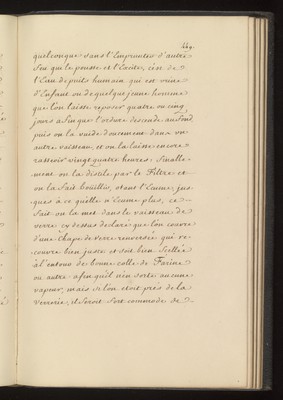 449.
quelconque sans l'Emprunter d'autre
feu qui le pousse et l'Excite, c'est de
l'Eau de puits humain qui est urine
d'Enfant ou de quelque jeune homme
que l'on laisse reposer quatre ou cinq
jours afin que l'ordure descende au fond
puis on la vuide doucement dans un
autre vaisseau, et on la laisse encore
rasseoir vingt quatre heures: finalle-
ment on la distile par le Filtre et
on la fait bouillir, otant l'Ecume, jus-
ques à ce quelle n'Ecume plus, ce
fait on la met dans le vaisseau de
verre cy dessus declaré que l'on couvre
d'une Chape de verre renversée qui re-
couvre bien juste et soit bien scellée
à l'entour de bonne colle de Farine
ou autre afin qu'il n'en sorte aucune
vapeur, mais si l'on etoit près de la
verrerie, il seroit fort commode de